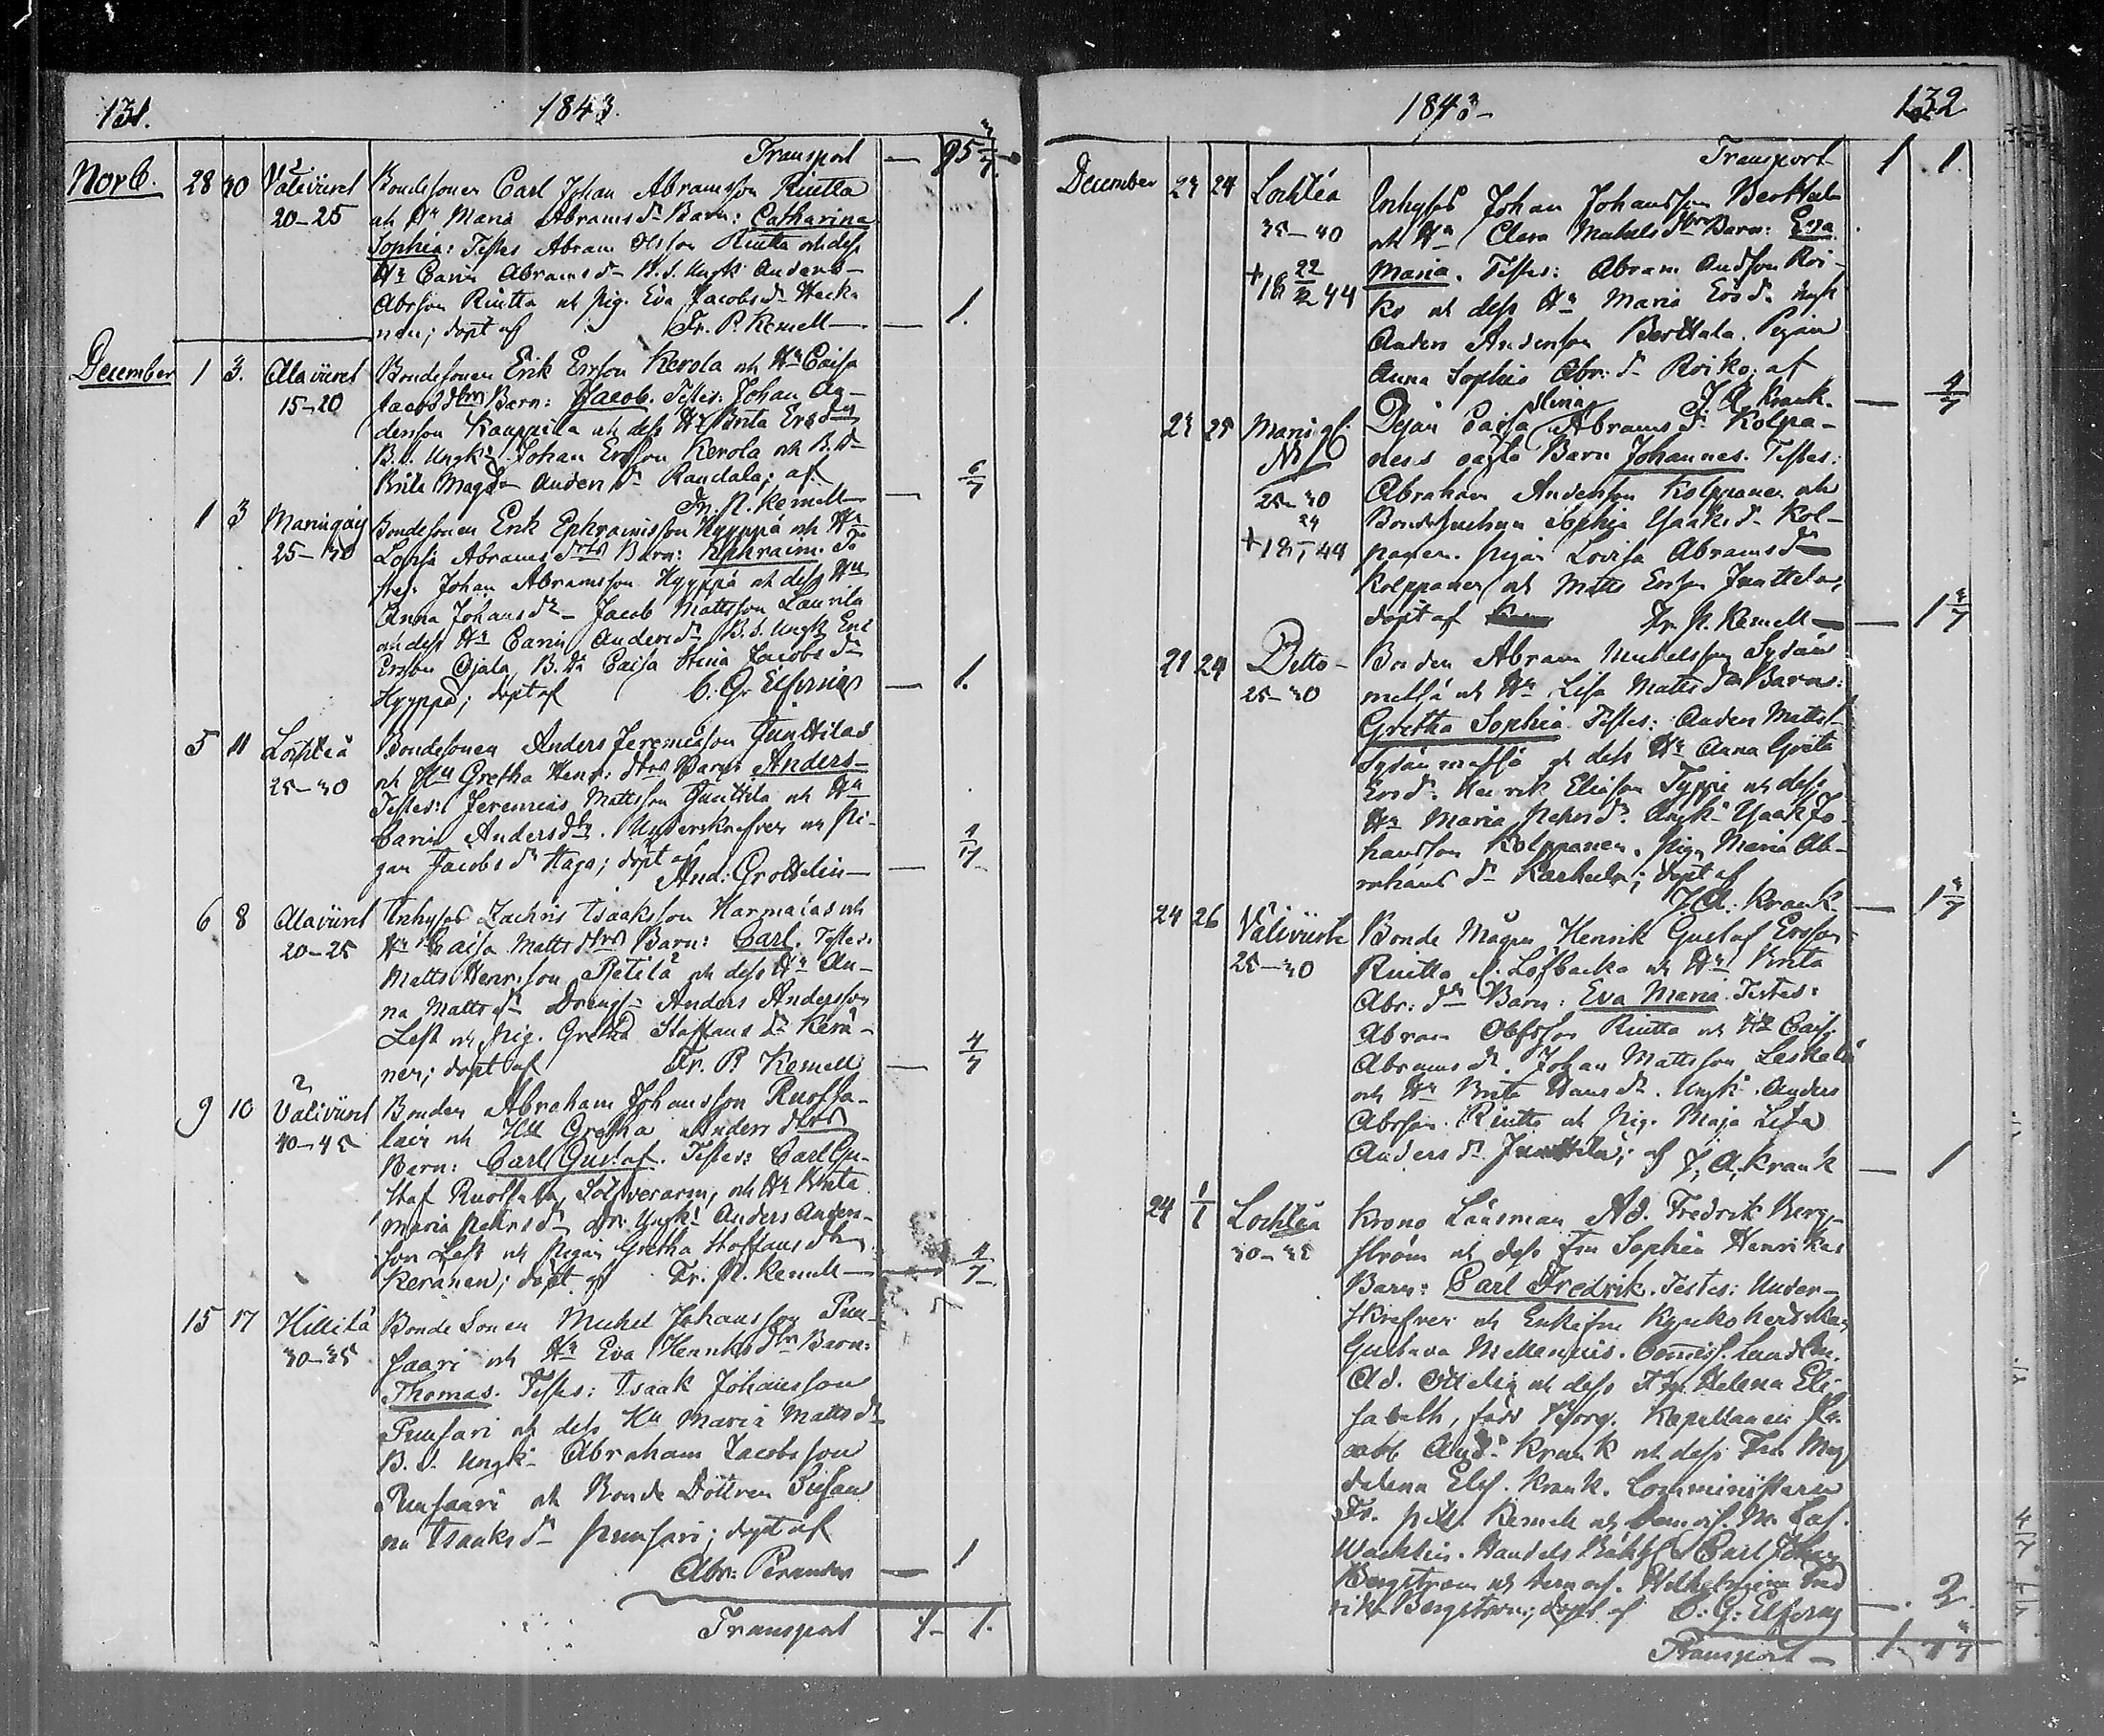 131. 1843.
Transport — 95
Novb. 28 30 Välivüret Bondesonen Carl Johan Abramsson Riutta
20–25 och Hu Maria Abramsdr Barn: Catharina
Sophia: Testes Abram Olsson Riutta och dess
Hu Carin Abramsdr B.S. Ungk. Anders
Abrsson Riutta och Pig. Eva Jacobsdr Hecka
nen; döpt af Fr. P. Kemell — 1.
December 1 3. Alavüret Bondesonen Erik Ersson Kerola och Hu Caisa
15–20 Jacobsdtrs Barn: Jacob. Testes: Johan An-
dersson Kauppila och dess Hu Brita Ersdr
B.S. Ungk. Johan Ersson Kerola och B.Dr
Brita Magd. Andersdr Raudala; af
Fr. P. Kemell — 6/7
1 3 Maringais Bondesonen Erik Ephraimsson Hyyppä och Hu
25–30 Lovisa Abramsdtrs Barn: Ephraim. Te
stes: Johan Abramsson Hyyppä och dess Hu
Anna Johansdr – Jacob Mattsson Laurila
och dess Hu Carin Andersdr B.S. Ungk. Eric
Ersson Ojala, B.Dr Caisa Stina Jacobsdr
Hyyppä; döpt af C. G. Elfving — 1.
5 11 Lochteå Bondesonen Anders Jeremiasson Junttilas
25–30 och Hu Gretha Henr: dtrs Barn Anders –
Testes: Jeremias Mattsson Junttila och Hu
Carin Andersdr. Underskrefven och Pi-
gan Jacobsdr Haga; döpt af
And: Grothelin — 4/7
6 8 Alavüret Inhyses Zachris Isaksson Harmalas och
20–25 Hu Caisa Mattsdtrs Barn: Carl. Testes:
Matts Henrsson Pietilä och dess Hu An-
na Mattsdr Drengs: Anders Andersson
Lest och Pig. Gretha Staffansdr Kerä-
nen; döpt af Fr. P. Kemell — 4/7
9 10 Välivüret Bonden Abraham Johansson Ruotsa-
40–45 lain och Hu Gretha Andersdtrs
Barn: Carl Gustaf. Testes: Carl Gu-
staf Ruotsala, och Hu Brita
Maria Pehrsdr Ungk: Anders Anders-
son Lest och Pigan Gretha Staffansdtr
Keränen; döpt af Fr. P. Kemell — 4/7
15 17 Hillilä Bonde Sonen Michel Johansson Pun-
30–35 saari och Hu Eva Henriksdtrs Barn:
Thomas. Testes: Isaak Johansson
Punsari och dess Hu Maria Mattsdr
B.S. Ungk: Abraham Jacobsson
Punsaari och Bonde Dottren Susan
na Isaaksdr Punsari; döpt af
Abr: Perander — 1
Transport 1– 1.
1843 – 132
Transport 1 1.
December 23 24 Lochteå Inhyses Johan Johansson Berttula
35–40 och Hu Clara Michelsdtrs Barn: Eva
+ 18 22/2 44 Maria. Testes: Abram Andsson Roi-
ko och dess Hu Maria Ersdr. Ungk
Anders Andersson Berttala. Pigan
Anna Sophia Abr:dr Roiko; af
J. A. Krank. — 4/7
23 25 Marings: Pigan Caisa Stina Abramsdr Kolpa-
No 6 nens oägta Barn Johannes. Testes:
25–30 Abraham Andersson Kolppanen och
Bondehustrun Sophia Isaksdr Kol-
+ 18 24/1 44 panen. Pigan Lovisa Abramsdr
Kolppanen och Matts Ersson Junttila;
döpt af Fr. P. Kemell —
21 24 Ditto – Bonden Abram Michelsson Sydän
25–30 metsä och Hu Lisa Mattsdtrs Barn:
Gretha Sophia. Testes: Anders Matts-
Sydänmetsä och dess Hu Anna Greta
Ersdr. Henrik Eliasson Typpi och dess
Hu Maria Pehrsdr. Ungk: Isaak Jo-
hansson Kolppanen. Pig. Maria Ab-
rahams dr Karhula; döpt af
J. A. Krank —
24 26 Välivüret Bonde Mågen Henrik Gustaf Ersson
25–30 Riutta l. Löfbacka och Hu Brita
Abr: dtrs Barn: Eva Maria. Testes:
Abram Olofsson Riutta och Hu Caisa
Abramsdr. Johan Mattsson Leskelä
och Hu Brita Hansdr. Ungk: Anders
Abrsson Riutta och Pig. Maja Lisa
Andersdr Junttila; af J. A. Krank — 1
24 1/1 Lochteå Krono Länsman Ad. Fredrik Berg-
30–35 ström och dess Fru Sophia Henrikas
Barn: Carl Fredrik. Testes: Under-
skrefven och Enkefru Kyrkoherdskan
Gustava Mellenius.
Ad. och dess Fru Helena Eli-
sabeth, född Borg. Kapellanen
And: Krank och dess Fru Mag
dalena Elis. Krank. Comministern
Fr. P. Kemell och
Carl Johan
Bergström och Wilhelmina Fred
rika Bergström; döpt af C: G: Elfving — 2.
Transport – 1.